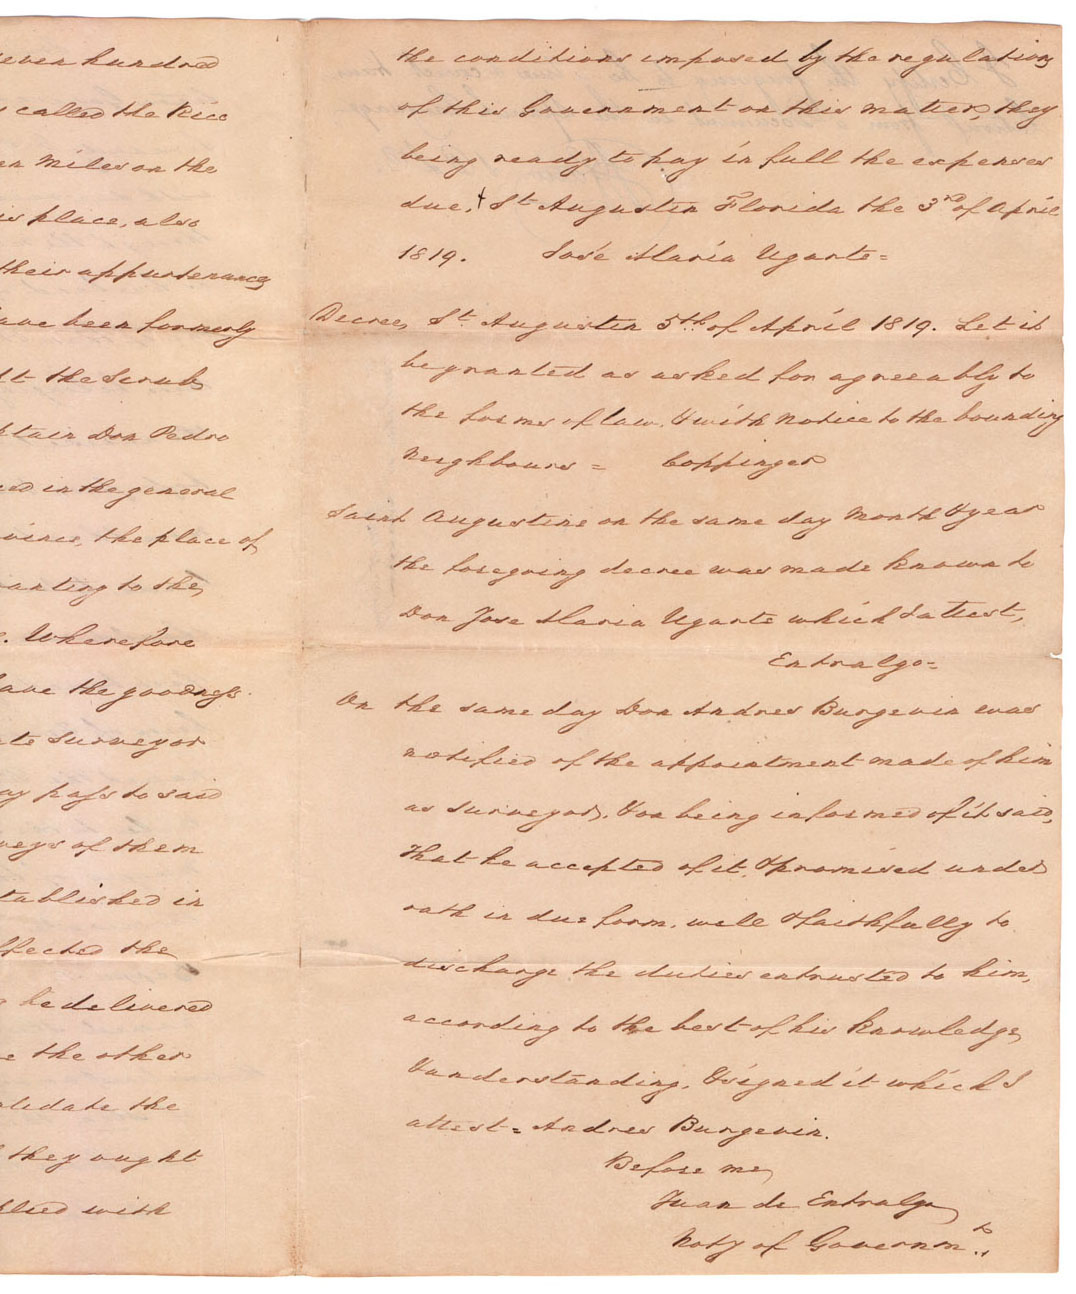 even hundred
called the Rice
en Miles on the
is place, also
their appurtenances
have been formerly
lt the Scrub
ptain Don Pedro
ed in the general
vince, the place of
anting to the
e. Wherefore
have the goodness
te Surveyor
ay pass to said
veys of them
tablished in
ffected the
be delivered
e the other
alidate the
they ought
plied with
the conditions imposed by the regulations
of this Government on this matter, they
being ready to pay in full the expenses
due, St Augustin Florida the 3rd of April
1819. José Maria Ugarte =
Decree, St. Augustin 5th of April 1819. Let it
be granted as asked for agreeably to
the forms of law, & with notice to the bounding
Neighbours = Coppinger
Saint Augustine on the same day Month & year
the foregoing decree was made known to
Don Jose Maria Ugarte which I attest,
Entralgo =
On the same day Don Andres Burgevin was
notified of the appointment made of him
as Surveyor, & on being informed of it said,
that he accepted of it, & promised under
oath in due form, well & faithfully to
discharge the duties entrusted to him,
according to the best of his knowledge
& understanding, & signed it which I
attest = Andres Burgevin.
Before me,
Juan de Entralgo
Noty of Governmt.,